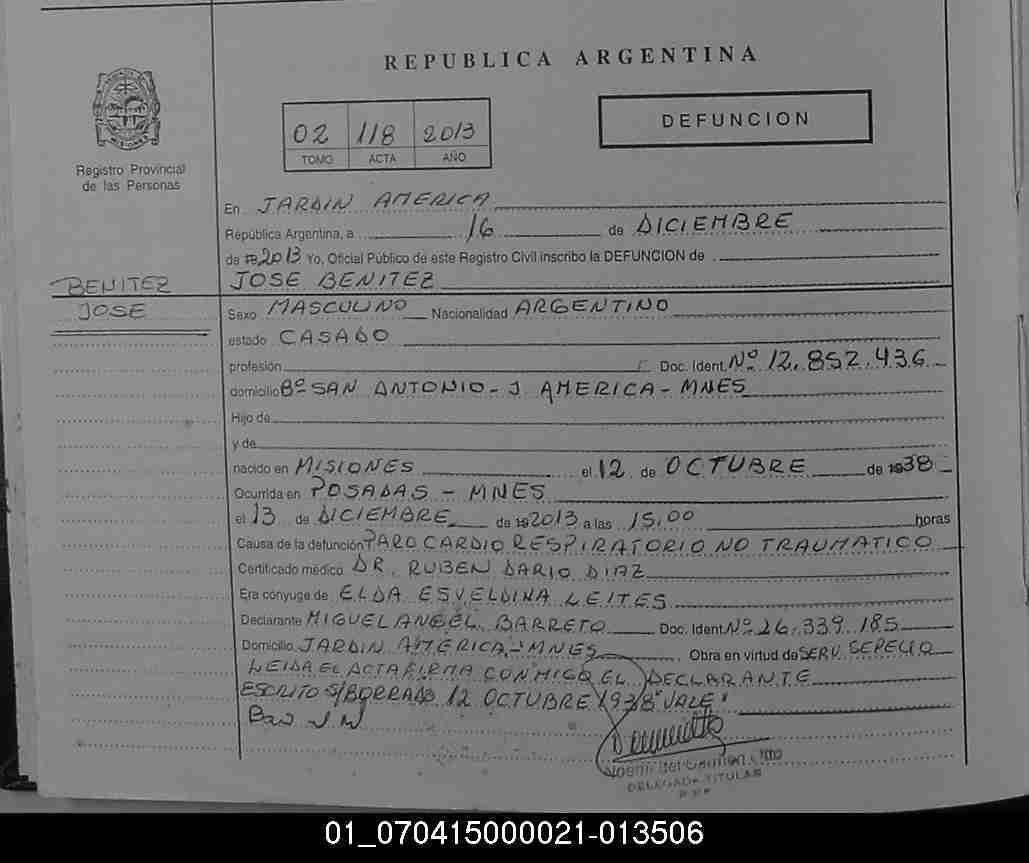 REPUBLICA ARGENTINA
02 118 2013
TOMO ACTA AÑO
DEFUNCION
Registro Provincial
de las Personas
En JARDIN AMERICA
República Argentina, a 16 de DICIEMBRE
de 2013 Yo, Oficial Público de este Registro Civil inscribo la DEFUNCION de
BENITEZ
JOSE BENITEZ
JOSE
Sexo MASCULINO Nacionalidad ARGENTINO
estado CASADO
profesión Doc. Ident. Nº 12.852.436
domicilio Bº SAN ANTONIO - J. AMERICA - MNES
Hijo de
y de
nacido en MISIONES el 12 de OCTUBRE de 1938
Ocurrida en POSADAS - MNES
el 13 de DICIEMBRE de 2013 a las 15,00 horas
Causa de la defunción PARO CARDIO RESPIRATORIO NO TRAUMATICO
Certificado médico DR. RUBEN DARIO DIAZ
Era cónyuge de ELDA ESVELDINA LEITES
Declarante MIGUEL ANGEL BARRETO Doc. Ident. Nº 26.339.185
Domicilio JARDIN AMERICA - MNES Obra en virtud de SERV. SEPELIO
LEIDA EL ACTA FIRMA CONMIGO EL DECLARANTE
ESCRITO S/BORRADO 12 OCTUBRE 1938 "VALE"
DELEGADA TITULAR
01_070415000021-013506